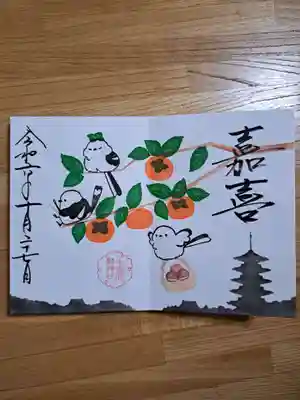 嘉喜
令和六年十月二十七日